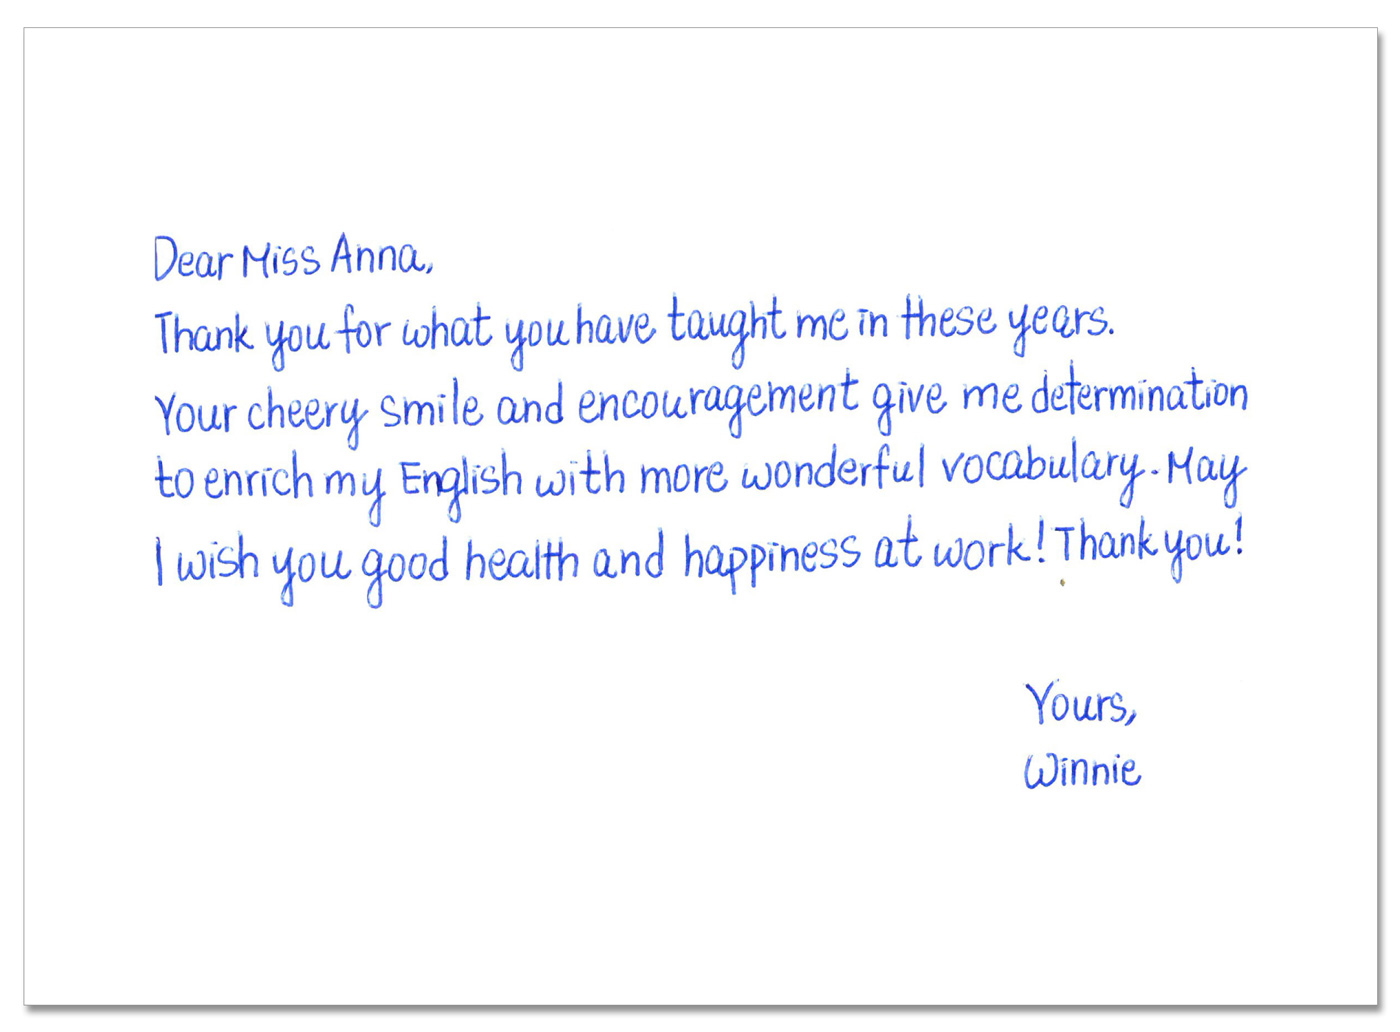 Dear Miss Anna,
Thank you for what you have taught me in these years.
Your cheery smile and encouragement give me determination
to enrich my English with more wonderful vocabulary. May
I wish you good health and happiness at work! Thank you!
Yours,
Winnie